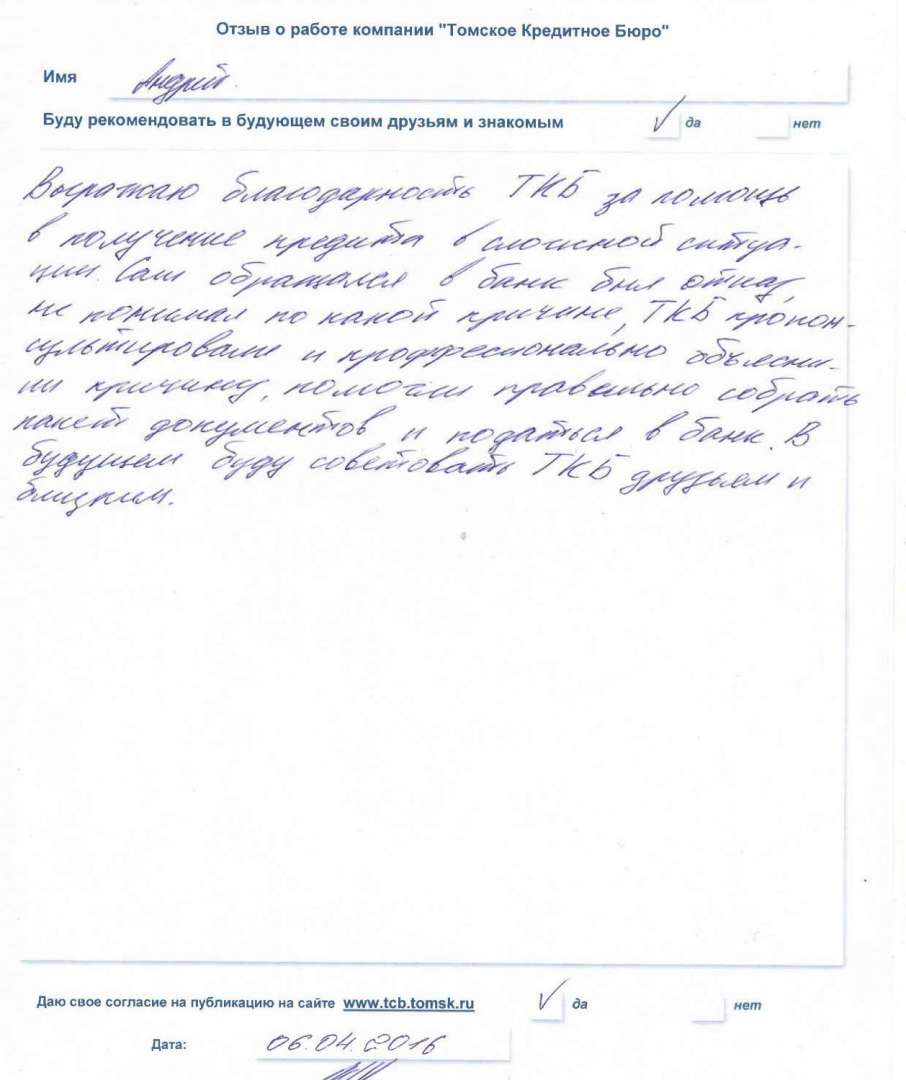 Отзыв о работе компании "Томское Кредитное Бюро"
Имя Андрей.
Буду рекомендовать в будующем своим друзьям и знакомым да нет
Выражаю благодарность ТКБ за помощь
в получение кредита в сложной ситуа-
ции. Сам обращался в банк был отказ,
не понимал по какой причине, ТКБ прокон-
сультировали и проффесионально объясни-
ли причину, помогли правильно собрать
пакет документов и податься в банк. В
будущем буду советовать ТКБ друзьям и
близким.
Даю свое согласие на публикацию на сайте www.tcb.tomsk.ru да нет
Дата: 06.04.2016